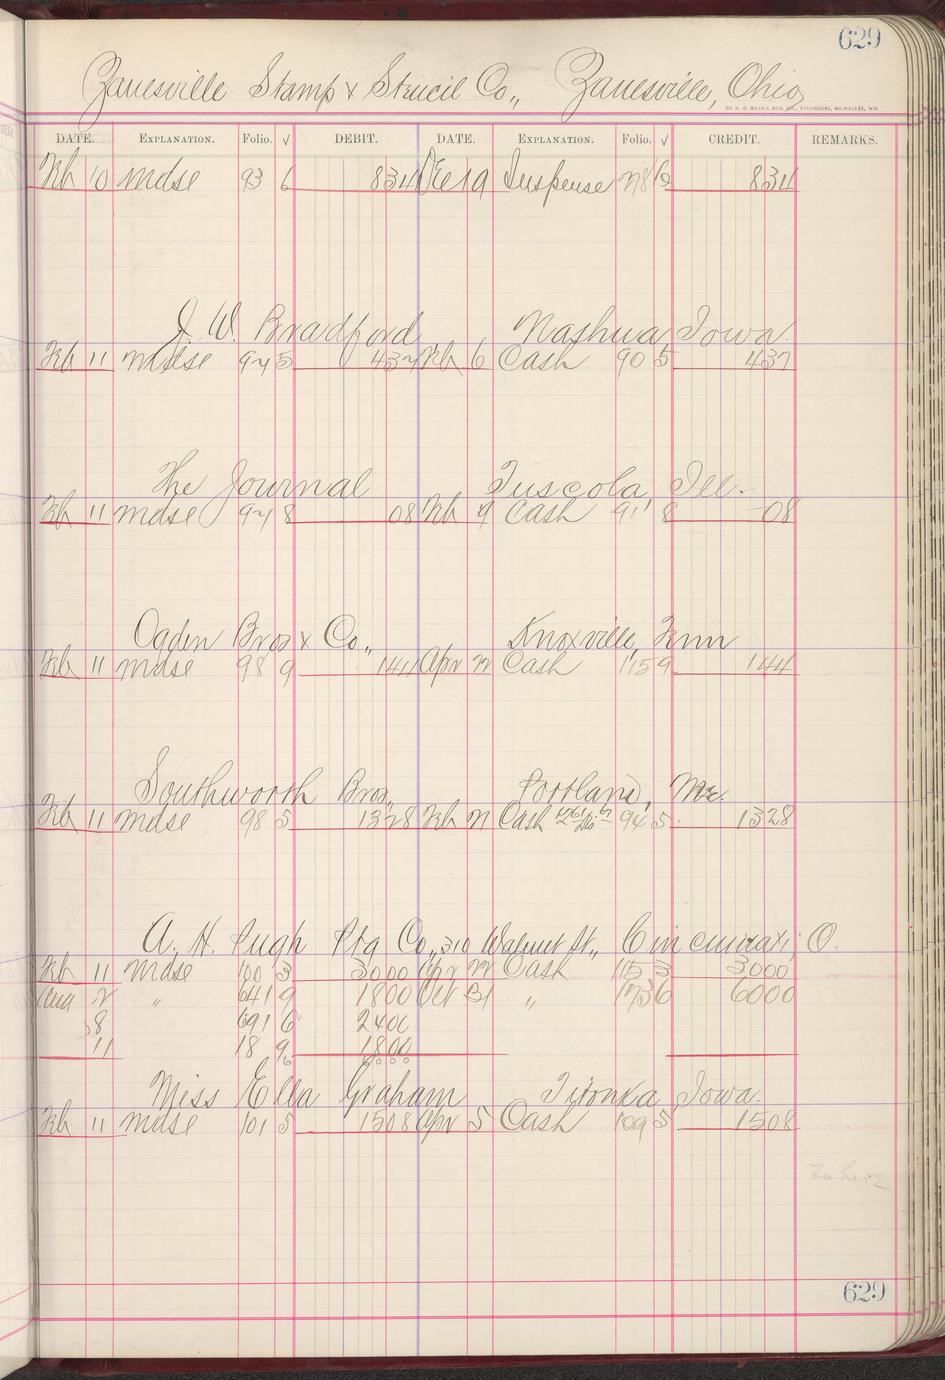 629
Zanesville Stamp & Stencil Co., Zanesville, Ohio
DATE. EXPLANATION. Folio. √ DEBIT. DATE. EXPLANATION. Folio. √ CREDIT. REMARKS.
Feb 10 mdse 93 6 834 Dec 19 Suspense 834
J. W. Bradford Nashua, Iowa.
Feb 11 mdse 5 437 Feb 6 Cash 90 5 437
The Journal Tuscola, Ill.
Feb 11 mdse 8 08 Feb 9 Cash 91 8 08
Ogden Bros & Co., Knoxville, Tenn
Feb 11 mdse 98 9 144 Apr 22 Cash 115 9 144
Southworth Bros., Portland, Me.
Feb 11 mdse 98 5 1328 Feb Cash 94 5 1328
A. H. Pugh Ptg Co., 310 Walnut St., Cincinnati, O.
Feb 11 mdse 100 3 3000 Apr 22 Cash 115 3 3000
Aug 2 " 641 9 1800 Oct 31 " 173 6 6000
8 691 6 2400
11 18 9 1800
Miss Ella Graham Titonka, Iowa.
Feb 11 mdse 101 5 1508 Apr 5 Cash 109 5 1508
629